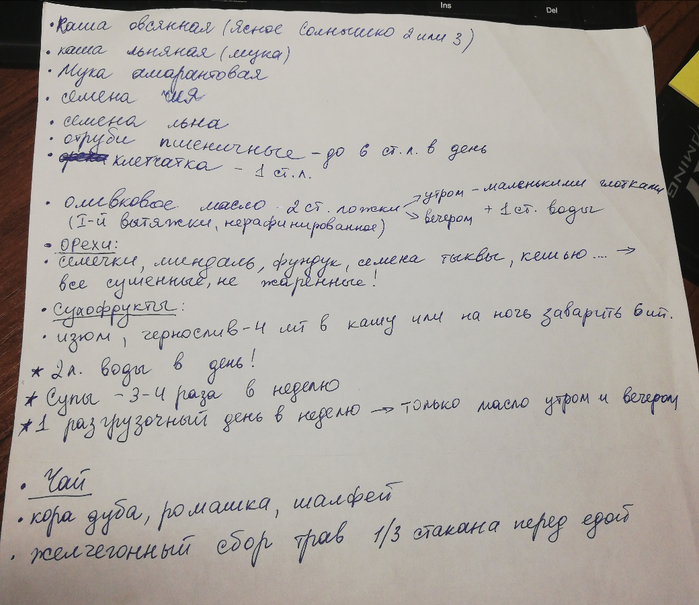 Ins
Del
• Каша овсянная (Ясное Солнышко 2 или 3)
• каша льняная (мука)
• Мука амарантовая
• семена чия
• семена льна
• отруби пшеничные - до 6 ст.л. в день
• клетчатка - 1 ст.л.
• оливковое масло - 2 ст. ложки → утром - маленькими глотками
(I-й вытяжки, нерафинированное) → вечером + 1 ст. воды
• ОРЕХИ:
• семечки, миндаль, фундук, семена тыквы, кешью.... →
все сушенные, не жаренные!
• Сухофрукты:
• изюм, чернослив - 4 шт в кашу или на ночь заварить 6 шт.
* 2 л. воды в день!
* Супы - 3-4 раза в неделю
* 1 разгрузочный день в неделю → только масло утром и вечером
• Чай
• кора дуба, ромашка, шалфей
• желчегонный сбор трав 1/3 стакана перед едой
MING